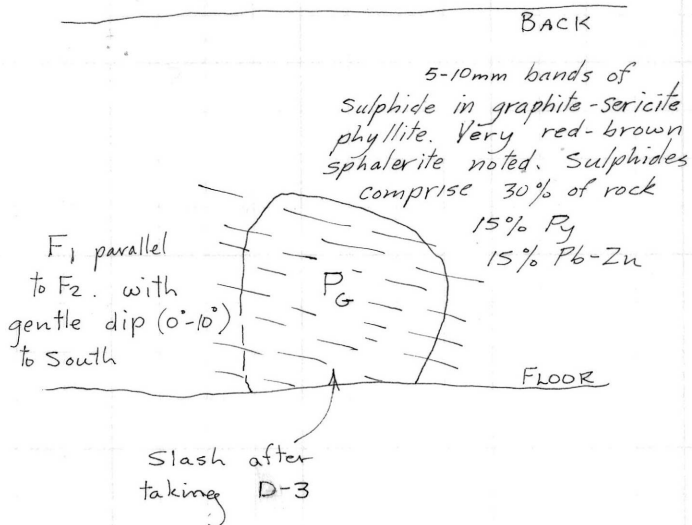 BACK
5-10mm bands of
Sulphide in graphite-sericite
phyllite. Very red-brown
sphalerite noted. Sulphides
comprise 30% of rock
15% Py
15% Pb-Zn
F1 parallel
to F2. with
gentle dip (0°-10°)
to South
PG
FLOOR
Slash after
taking D-3